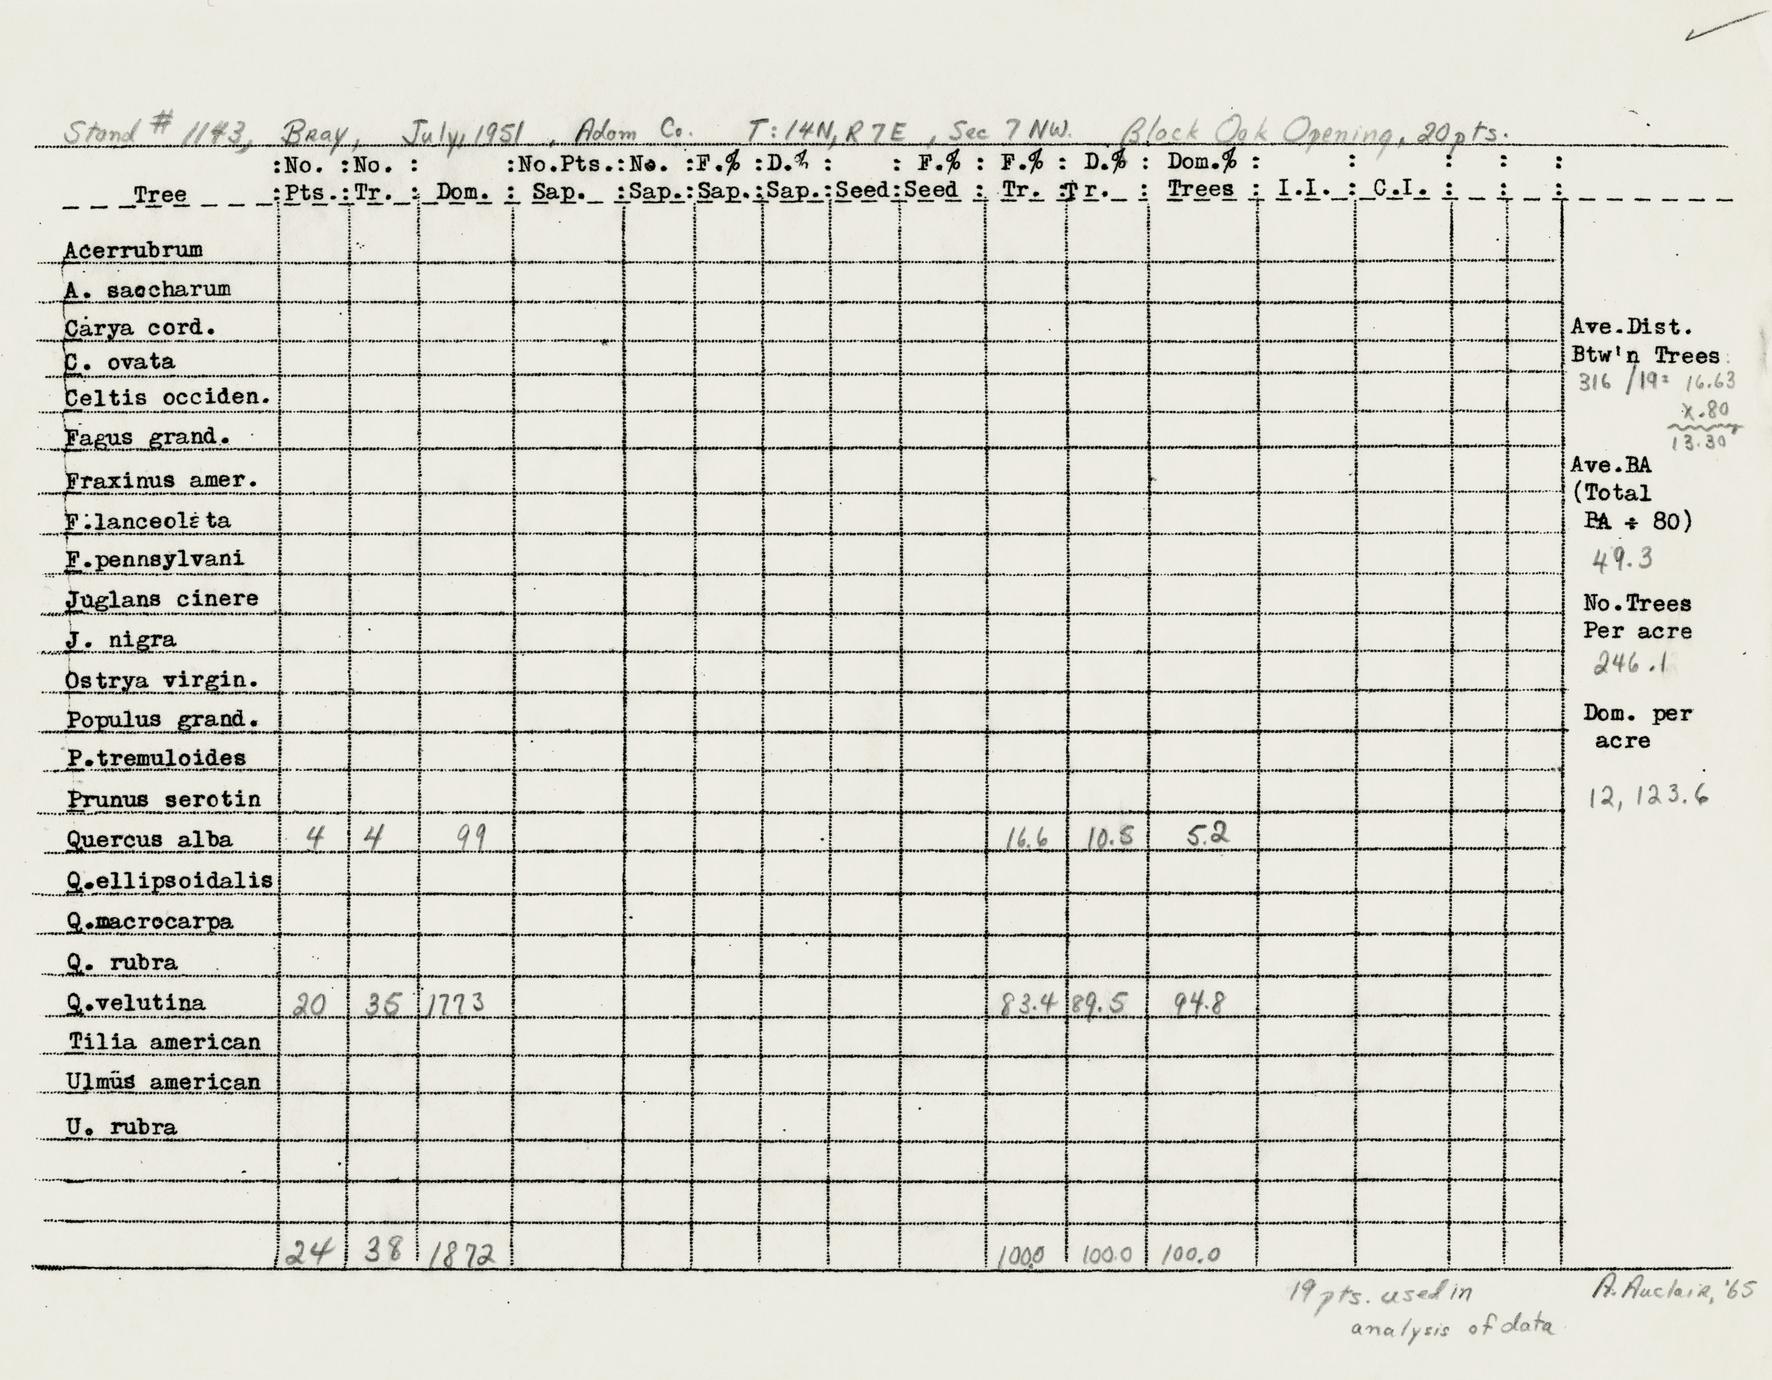 Stand # 1143, Bray, July, 1951, Adam Co. T:14N, R7E, Sec 7 NW. Black Oak Opening, 20 pts.
:No. :No. : :No.Pts.:No. :F.% :D.% : : F.% : F.% : D.% : Dom.% : : : : :
Tree :Pts.:Tr. : Dom. : Sap. :Sap.:Sap.:Sap.:Seed:Seed : Tr. :Tr. : Trees : I.I. : C.I. : : :
Acerrubrum
A. saccharum
Carya cord.
C. ovata
Celtis occiden.
Fagus grand.
Fraxinus amer.
F.lanceolata
F.pennsylvani
Juglans cinere
J. nigra
Ostrya virgin.
Populus grand.
P.tremuloides
Prunus serotin
Quercus alba 4 4 99 16.6 10.5 5.2
Q.ellipsoidalis
Q.macrocarpa
Q. rubra
Q.velutina 20 35 1773 83.4 89.5 94.8
Tilia american
Ulmus american
U. rubra
24 38 1872 100.0 100.0 100.0
Ave.Dist.
Btw'n Trees
316 /19= 16.63
x.80
13.30
Ave.BA
(Total
BA ÷ 80)
49.3
No.Trees
Per acre
246.1
Dom. per
acre
12,123.6
19 pts. used in
analysis of data
A. Auclair, '65